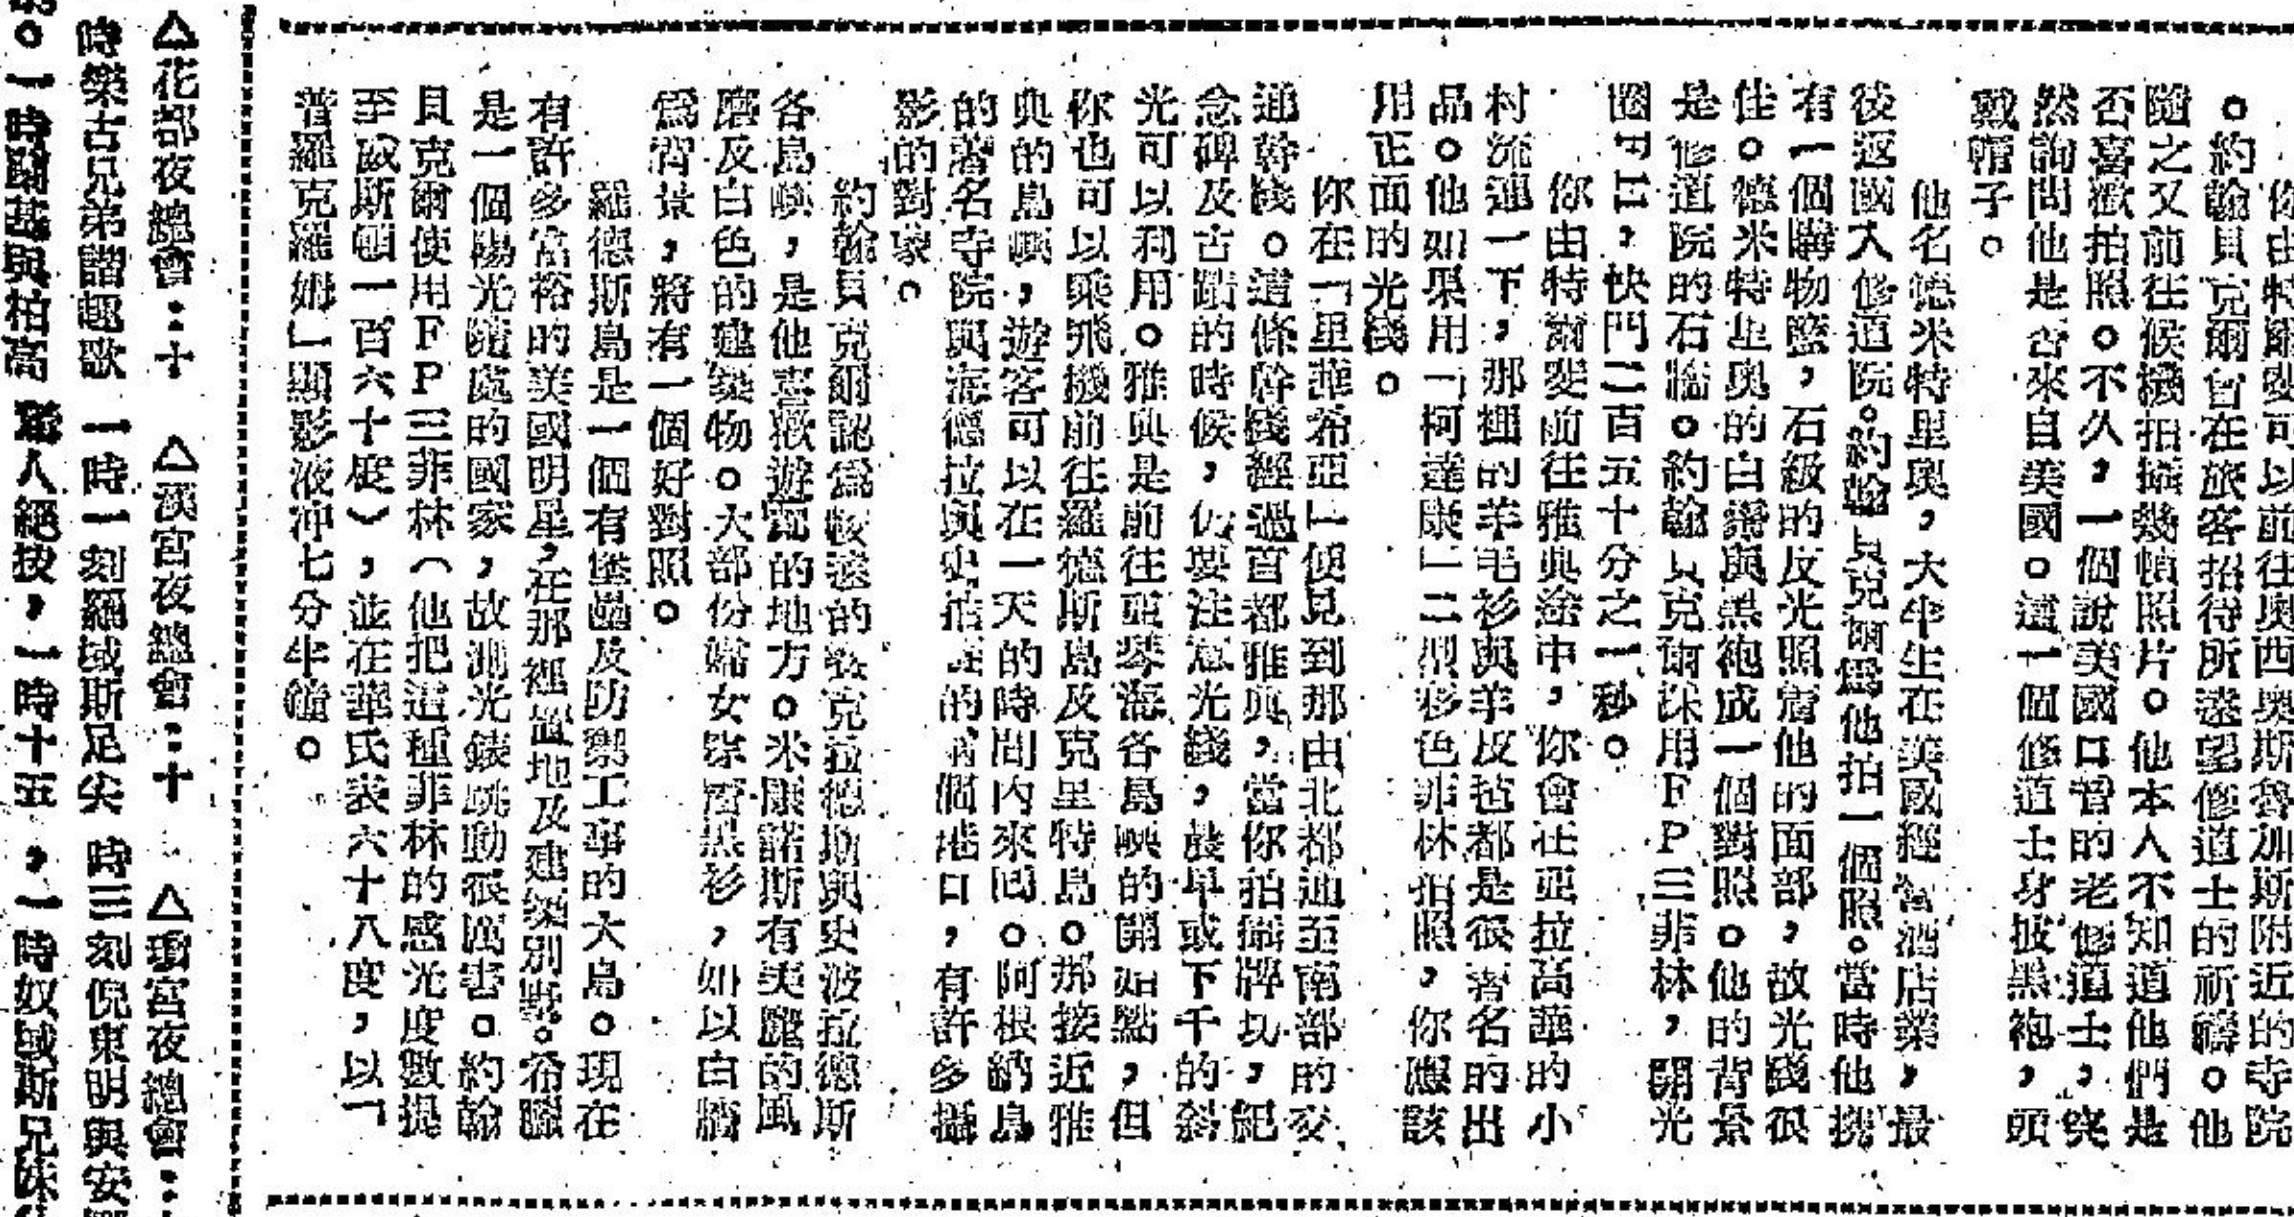 你由特爾斐可以前往奧西奧斯魯加斯附近的寺院
。約翰貝克爾曾在旅客招待所遠望修道士的祈禱。他
隨之又前往候機拍攝幾幀照片。他本人不知道他們是
否喜歡拍照。不久，一個說美國口音的老修道士，突
然詢問他是否來自美國。這一個修道士身披黑袍，頭
戴帽子。
他名德米特里奧，大半生在美國經營酒店業，最
後返國入修道院。約翰貝克爾爲他拍一個照。當時他携
有一個購物籃，石級的反光照着他的面部，故光綫很
佳。德米特里奧的白鬚與黑袍成一個對照。他的背景
是修道院的石牆。約翰貝克爾採用ＦＰ三菲林，開光
圈F11，快門二百五十分之一秒。
你由特爾斐前往雅典途中，你會在亞拉高華的小
村流連一下，那裡的羊毛衫與羊皮毡都是很著名的出
品。他如果用「柯達康」二型彩色菲林拍照，你應該
用正面的光綫。
你在「里華希亞」便見到那由北都通至南部的交
通幹綫。這條幹綫經過首都雅典，當你拍攝牌坊，紀
念碑及古蹟的時候，仍要注意光綫，晨早或下午的斜
光可以利用。雅典是前往亞琴海各島嶼的開始點，但
你也可以乘飛機前往羅德斯島及克里特島。那接近雅
典的島嶼，遊客可以在一天的時間內來囘。阿根納島
的著名寺院與海德拉與史塔 的兩個港口，有許多攝
影的對象。
約翰貝克爾認爲較遠的 克拉德斯與史波拉德斯
各島嶼，是他喜歡遊覽的地方。米康諾斯有美麗的風
磨及白色的建築物。大部份婦女穿着黑衫，如以白牆
爲背景，將有一個好對照。
羅德斯島是一個有堡壘及防禦工事的大島。現在
有許多富裕的美國明星，在那裡置地及建築別墅。希臘
是一個陽光隨處的國家，故測光錶跳動很厲害。約翰
貝克爾使用ＦＰ三菲林（他把這種菲林的感光度數提
至威斯頓一百六十度），並在華氏表六十八度，以「
普羅克羅姆」顯影液冲七分半鐘。
△花都夜總會：十　△漢宮夜總會：十　△瓊宮夜總會：
時樂古兄弟諧趣歌　一時一刻羅域斯足尖　時三刻倪東明與安
。一時關基與柏高　 人絕技，一時十五　，一時奴域斯兄妹